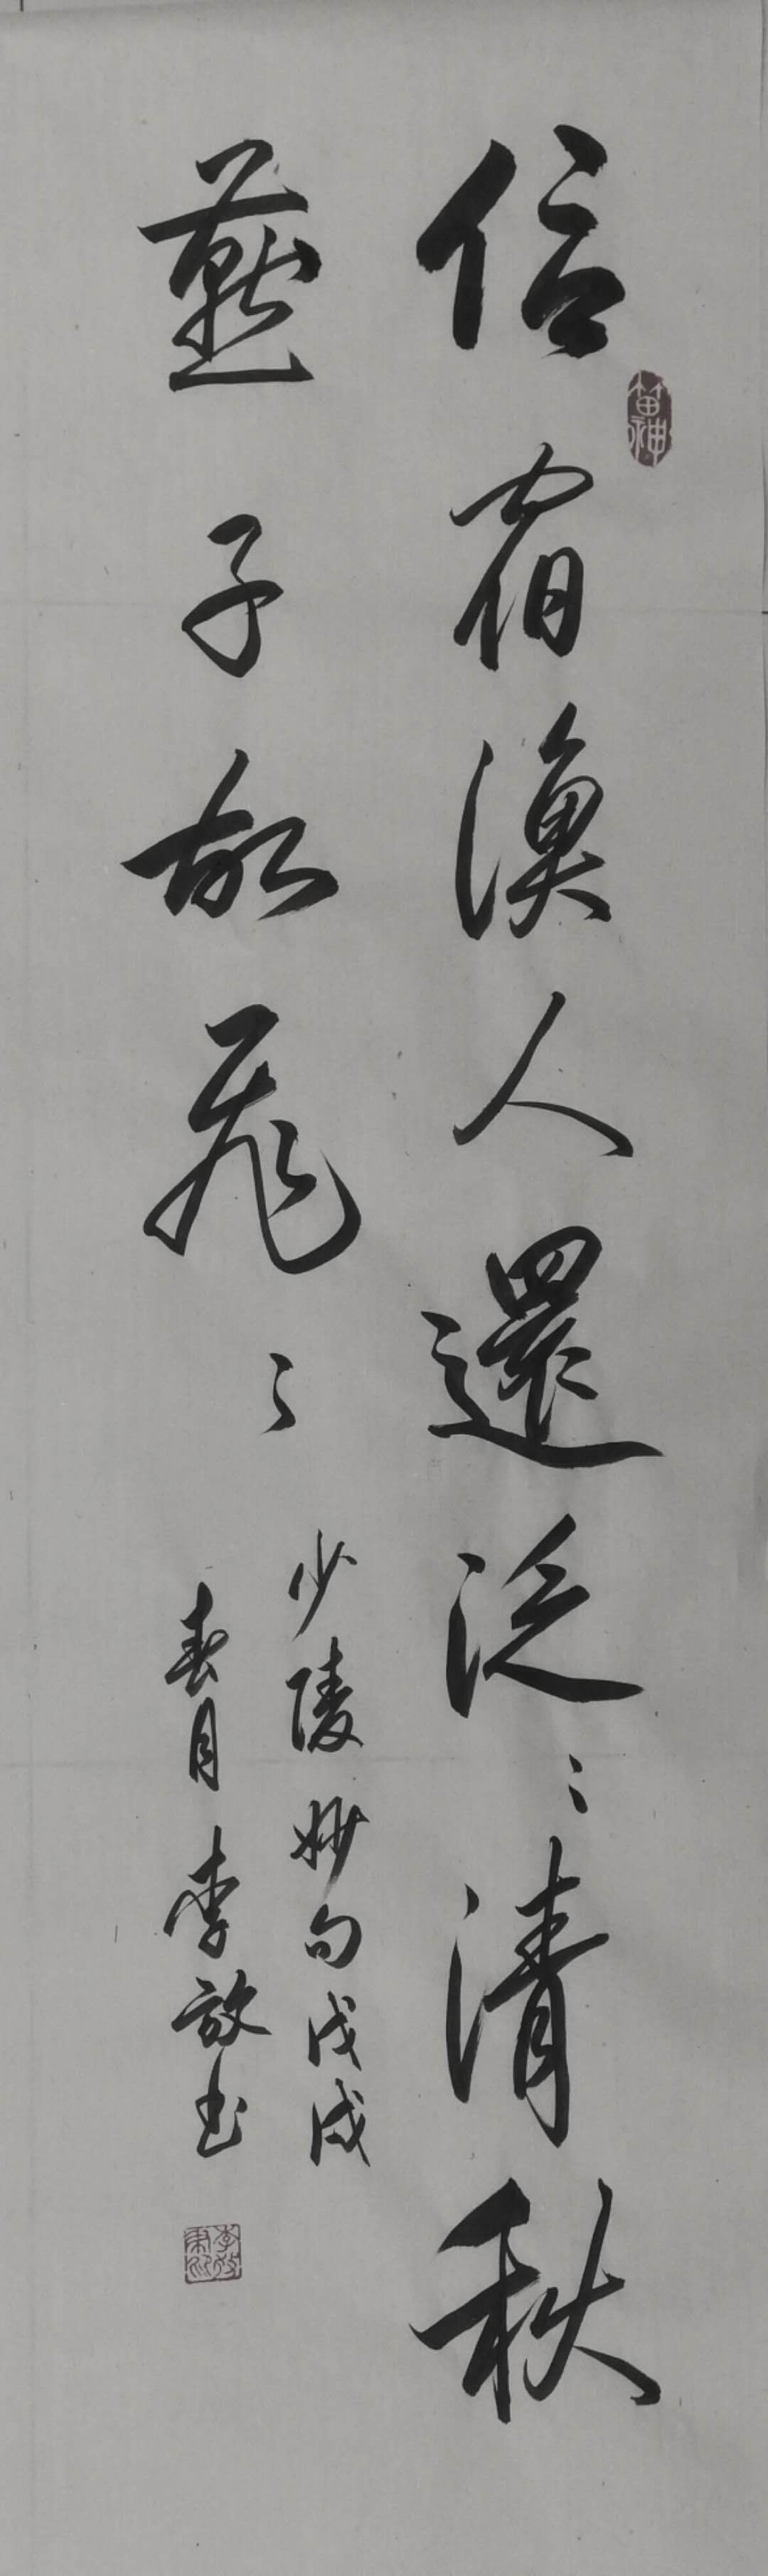 信宿漁人還泛〻清秋
燕子故飛〻
少陵妙句戊戌
春月李放書